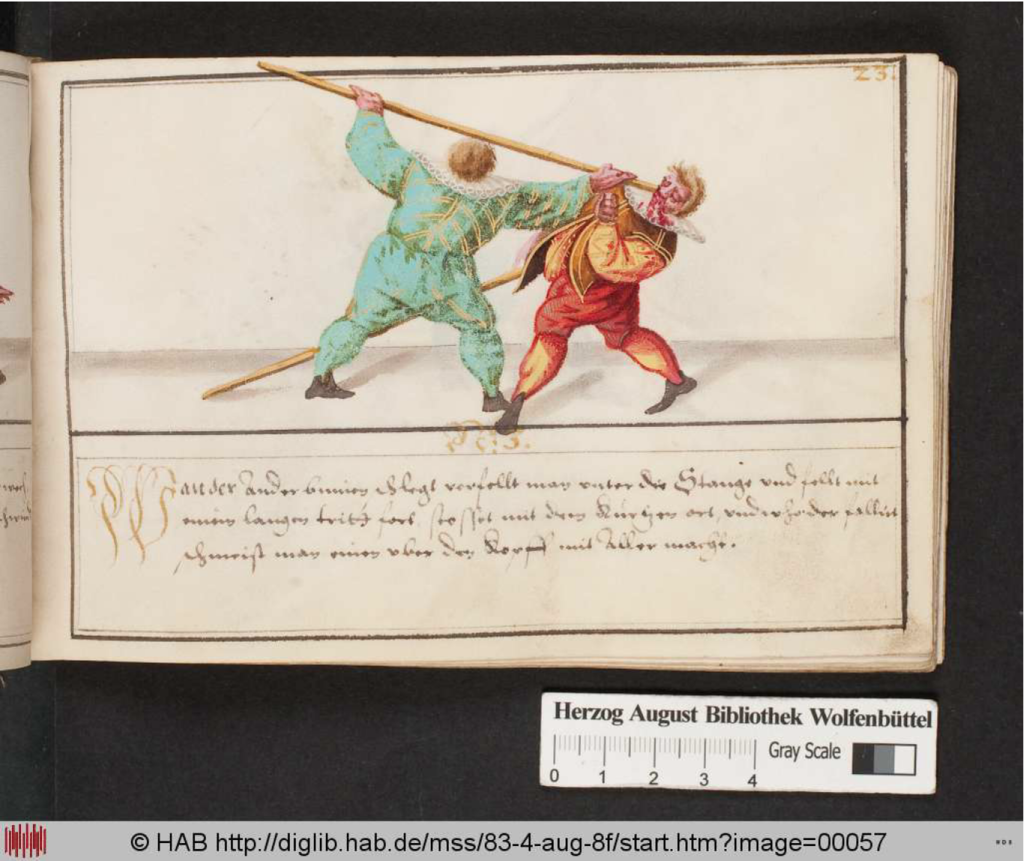 23.
No: 5.
Wan der Ander binnen schlegt verfellt man unter die Stange und fellt mit
einem langen tritt fort, stosset mit dem kurtzen ort, und der fallirt
schmeist man einen uber den Kopff mit Aller macht.
Herzog August Bibliothek Wolfenbüttel
Gray Scale
0 1 2 3 4
© HAB http://diglib.hab.de/mss/83-4-aug-8f/start.htm?image=00057